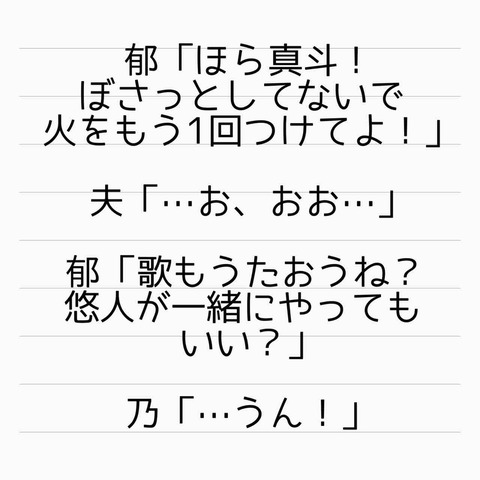 郁「ほら真斗！
ぼさっとしてないで
火をもう1回つけてよ！」
夫「…お、おお…」
郁「歌もうたおうね？
悠人が一緒にやっても
いい？」
乃「…うん！」